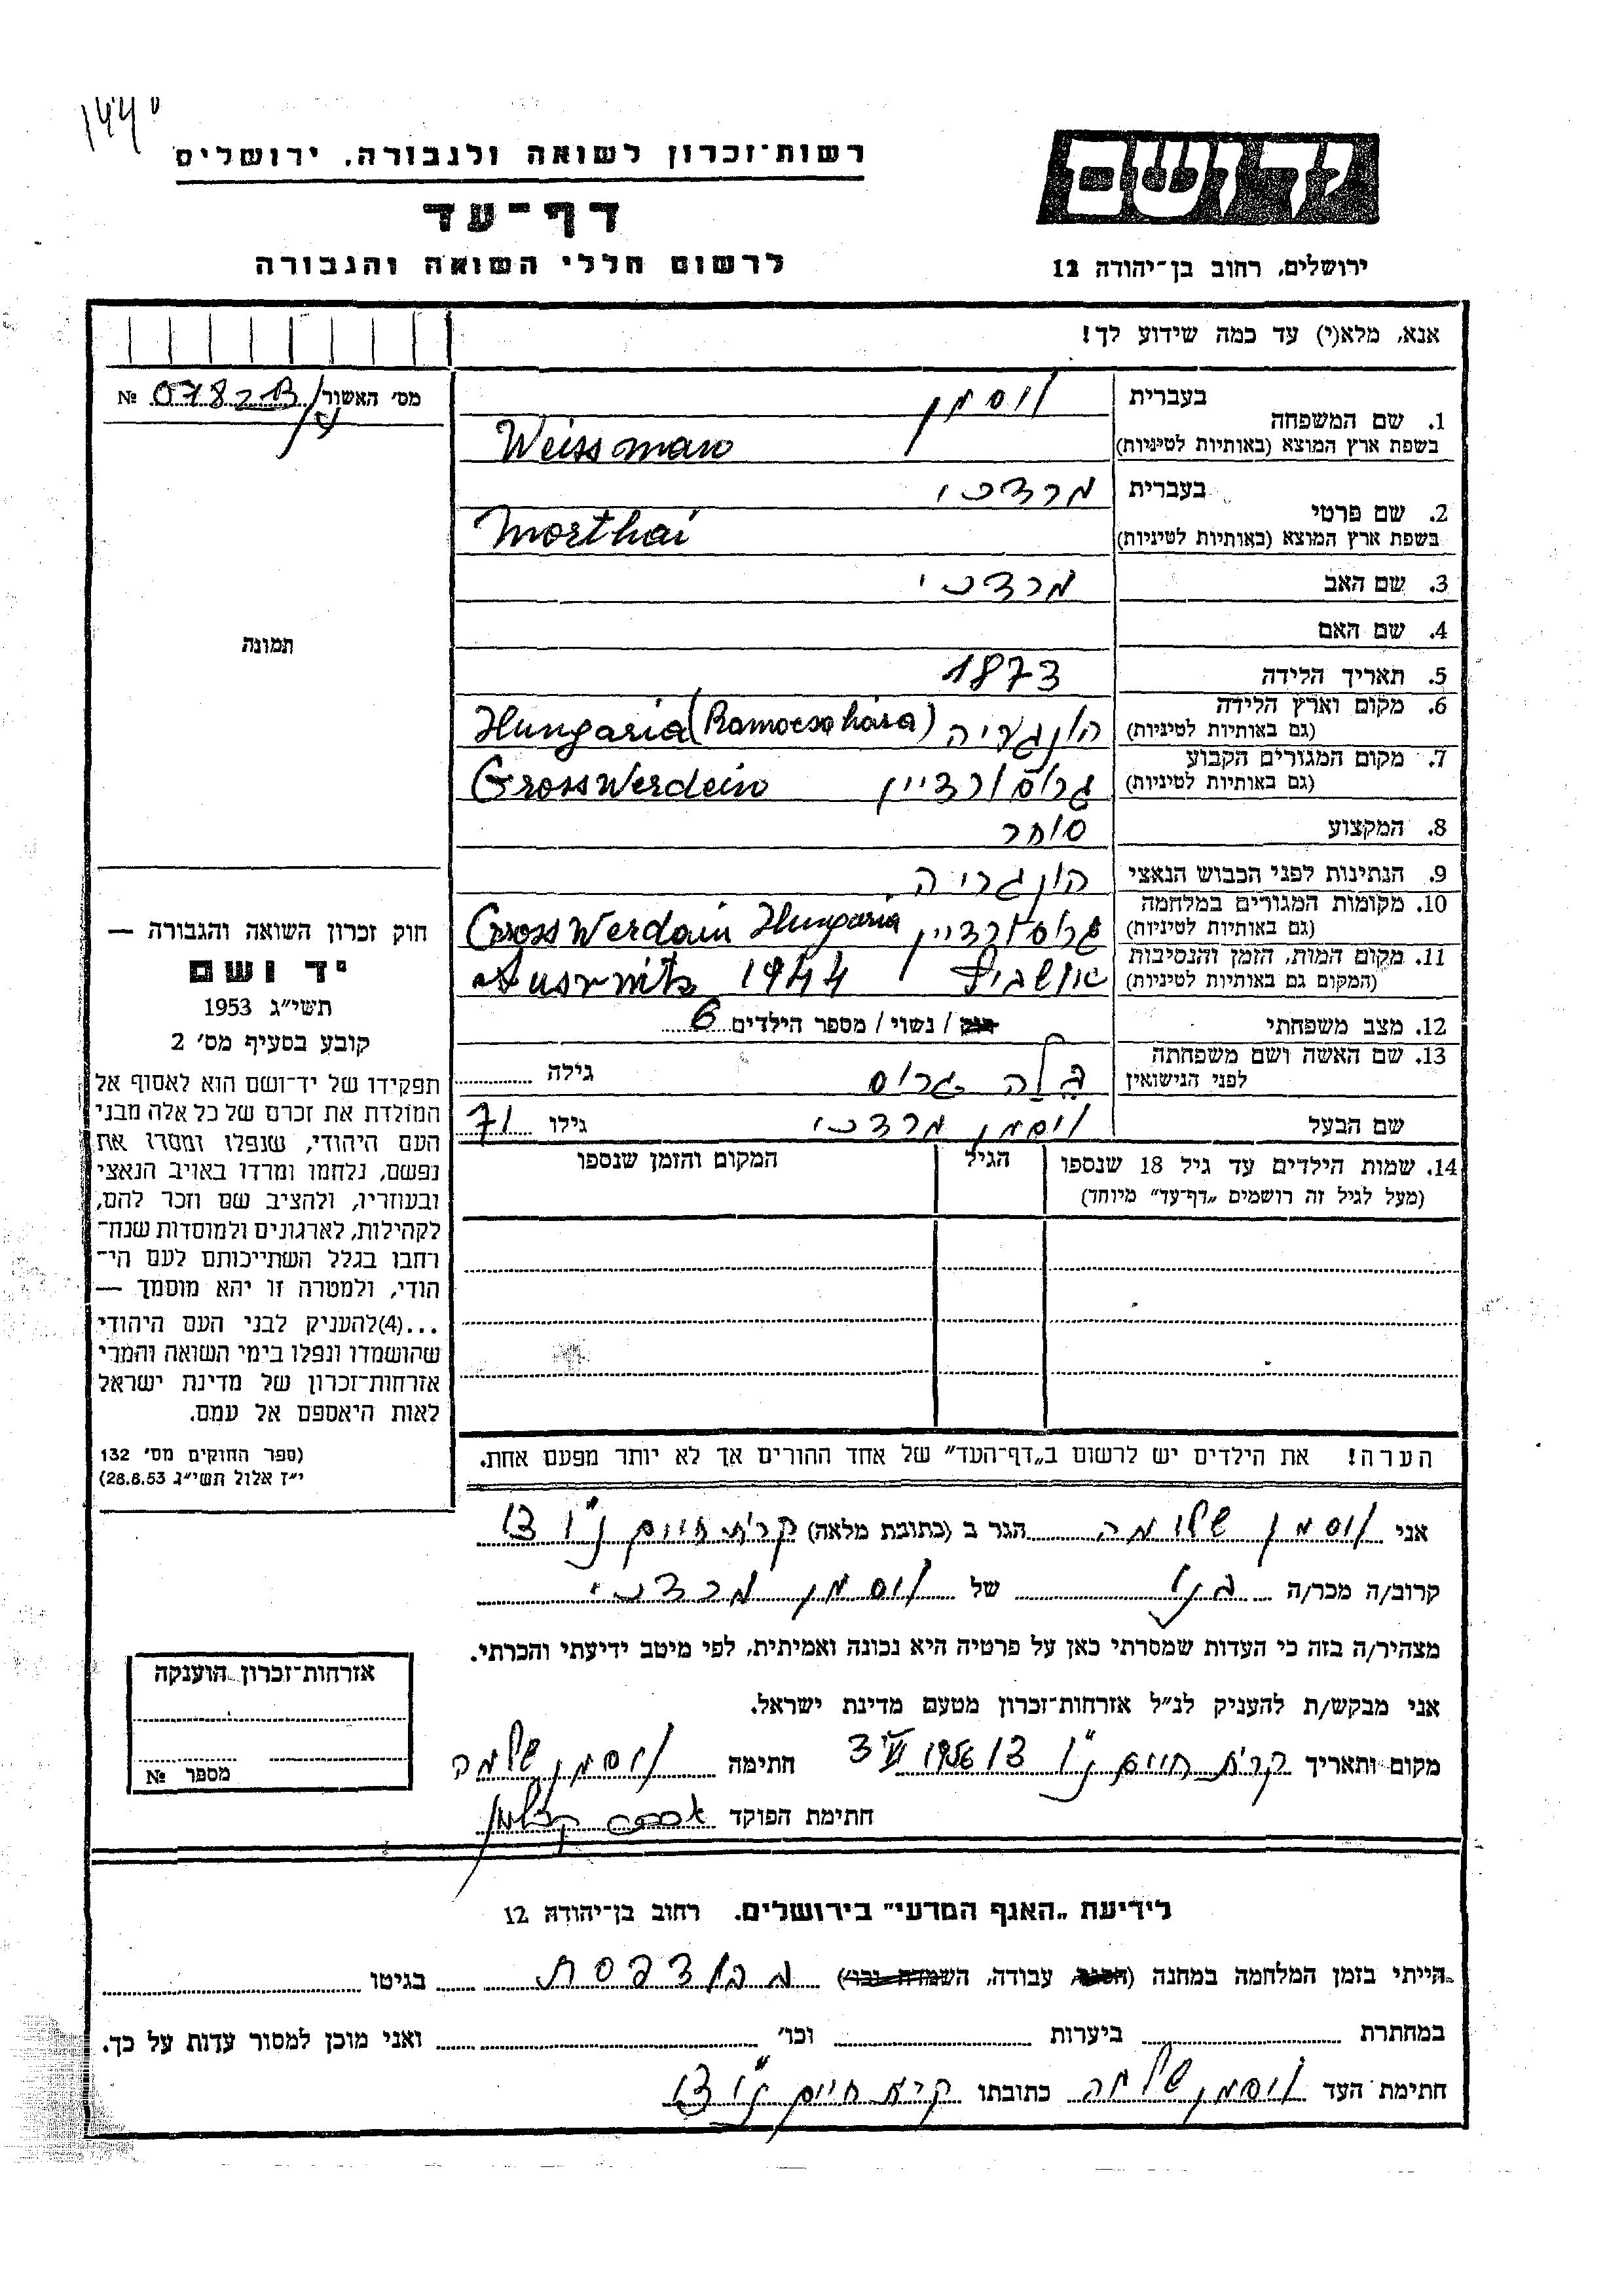 רשות־זכרון לשואה ולגבורה, ירושלים
יד ושם
דף־עד
לרשום חללי השואה והגבורה
ירושלים, רחוב בן־יהודה 12
אנא, מלא(י) עד כמה שידוע לך!
מס׳ האשור № 0782
1. שם המשפחה
בעברית וסמן
בשפת ארץ המוצא (באותיות לטיניות) Weissman
2. שם פרטי
בעברית מרדכי
בשפת ארץ המוצא (באותיות לטיניות) Morthai
3. שם האב מרדכי
4. שם האם
תמונה
5. תאריך הלידה 1873
6. מקום וארץ הלידה
(גם באותיות לטיניות) הונגריה Hungaria
7. מקום המגורים הקבוע
(גם באותיות לטיניות) גרוסורדיין GrossWerdein
8. המקצוע סוחר
9. הנתינות לפני הכבוש הנאצי הונגריה
10. מקומות המגורים במלחמה
(גם באותיות לטיניות) גרוסורדיין Gross Werdain Hungaria
11. מקום המות, הזמן והנסיבות
(המקום גם באותיות לטיניות) 1944
12. מצב משפחתי רוק / נשוי / מספר הילדים 6
13. שם האשה ושם משפחתה
לפני הנישואין בלה גרוס גילה
שם הבעל וסמן מרדכי גילו 71
14. שמות הילדים עד גיל 18 שנספו הגיל המקום והזמן שנספו
(מעל לגיל זה רושמים „דף־עד” מיוחד)
חוק זכרון השואה והגבורה —
יד ושם
תשי״ג 1953
קובע בסעיף מס׳ 2
תפקידו של יד־ושם הוא לאסוף אל
המולדת את זכרם של כל אלה מבני
העם היהודי, שנפלו ומסרו את
נפשם, נלחמו ומרדו באויב הנאצי
ובעוזריו, ולהציב שם וזכר להם,
לקהילות, לארגונים ולמוסדות שנח־
רחבו בגלל השתייכותם לעם הי־
הודי, ולמטרה זו יהא מוסמך —
...(4)להעניק לבני העם היהודי
שהושמדו ונפלו בימי השואה והמרי
אזרחות־זכרון של מדינת ישראל
לאות היאספם אל עמם.
(ספר החוקים מס׳ 132
י״ז אלול תשי״ג 28.8.53)
הערה! את הילדים יש לרשום ב„דף־העד” של אחד ההורים אך לא יותר מפעם אחת.
אני וסמן שלומה הגר ב (כתובת מלאה) קרית חיים
קרוב/ה מכר/ה בנו של וסמן מרדכי
מצהיר/ה בזה כי העדות שמסרתי כאן על פרטיה היא נכונה ואמיתית, לפי מיטב ידיעתי והכרתי.
אני מבקש/ת להעניק לנ״ל אזרחות־זכרון מטעם מדינת ישראל.
מקום ותאריך קרית חיים 1956 חתימה וסמן שלמה
חתימת הפוקד
אזרחות־זכרון הוענקה
מספר №
לידיעת „האגף המדעי” בירושלים. רחוב בן־יהודה 12
הייתי בזמן המלחמה במחנה (הסגר, עבודה, השמדה וכו׳) בבודפסת בגיטו
במחתרת ביערות וכו׳ ואני מוכן למסור עדות על כך.
חתימת העד וסמן שלמה כתובתו קרית חיים